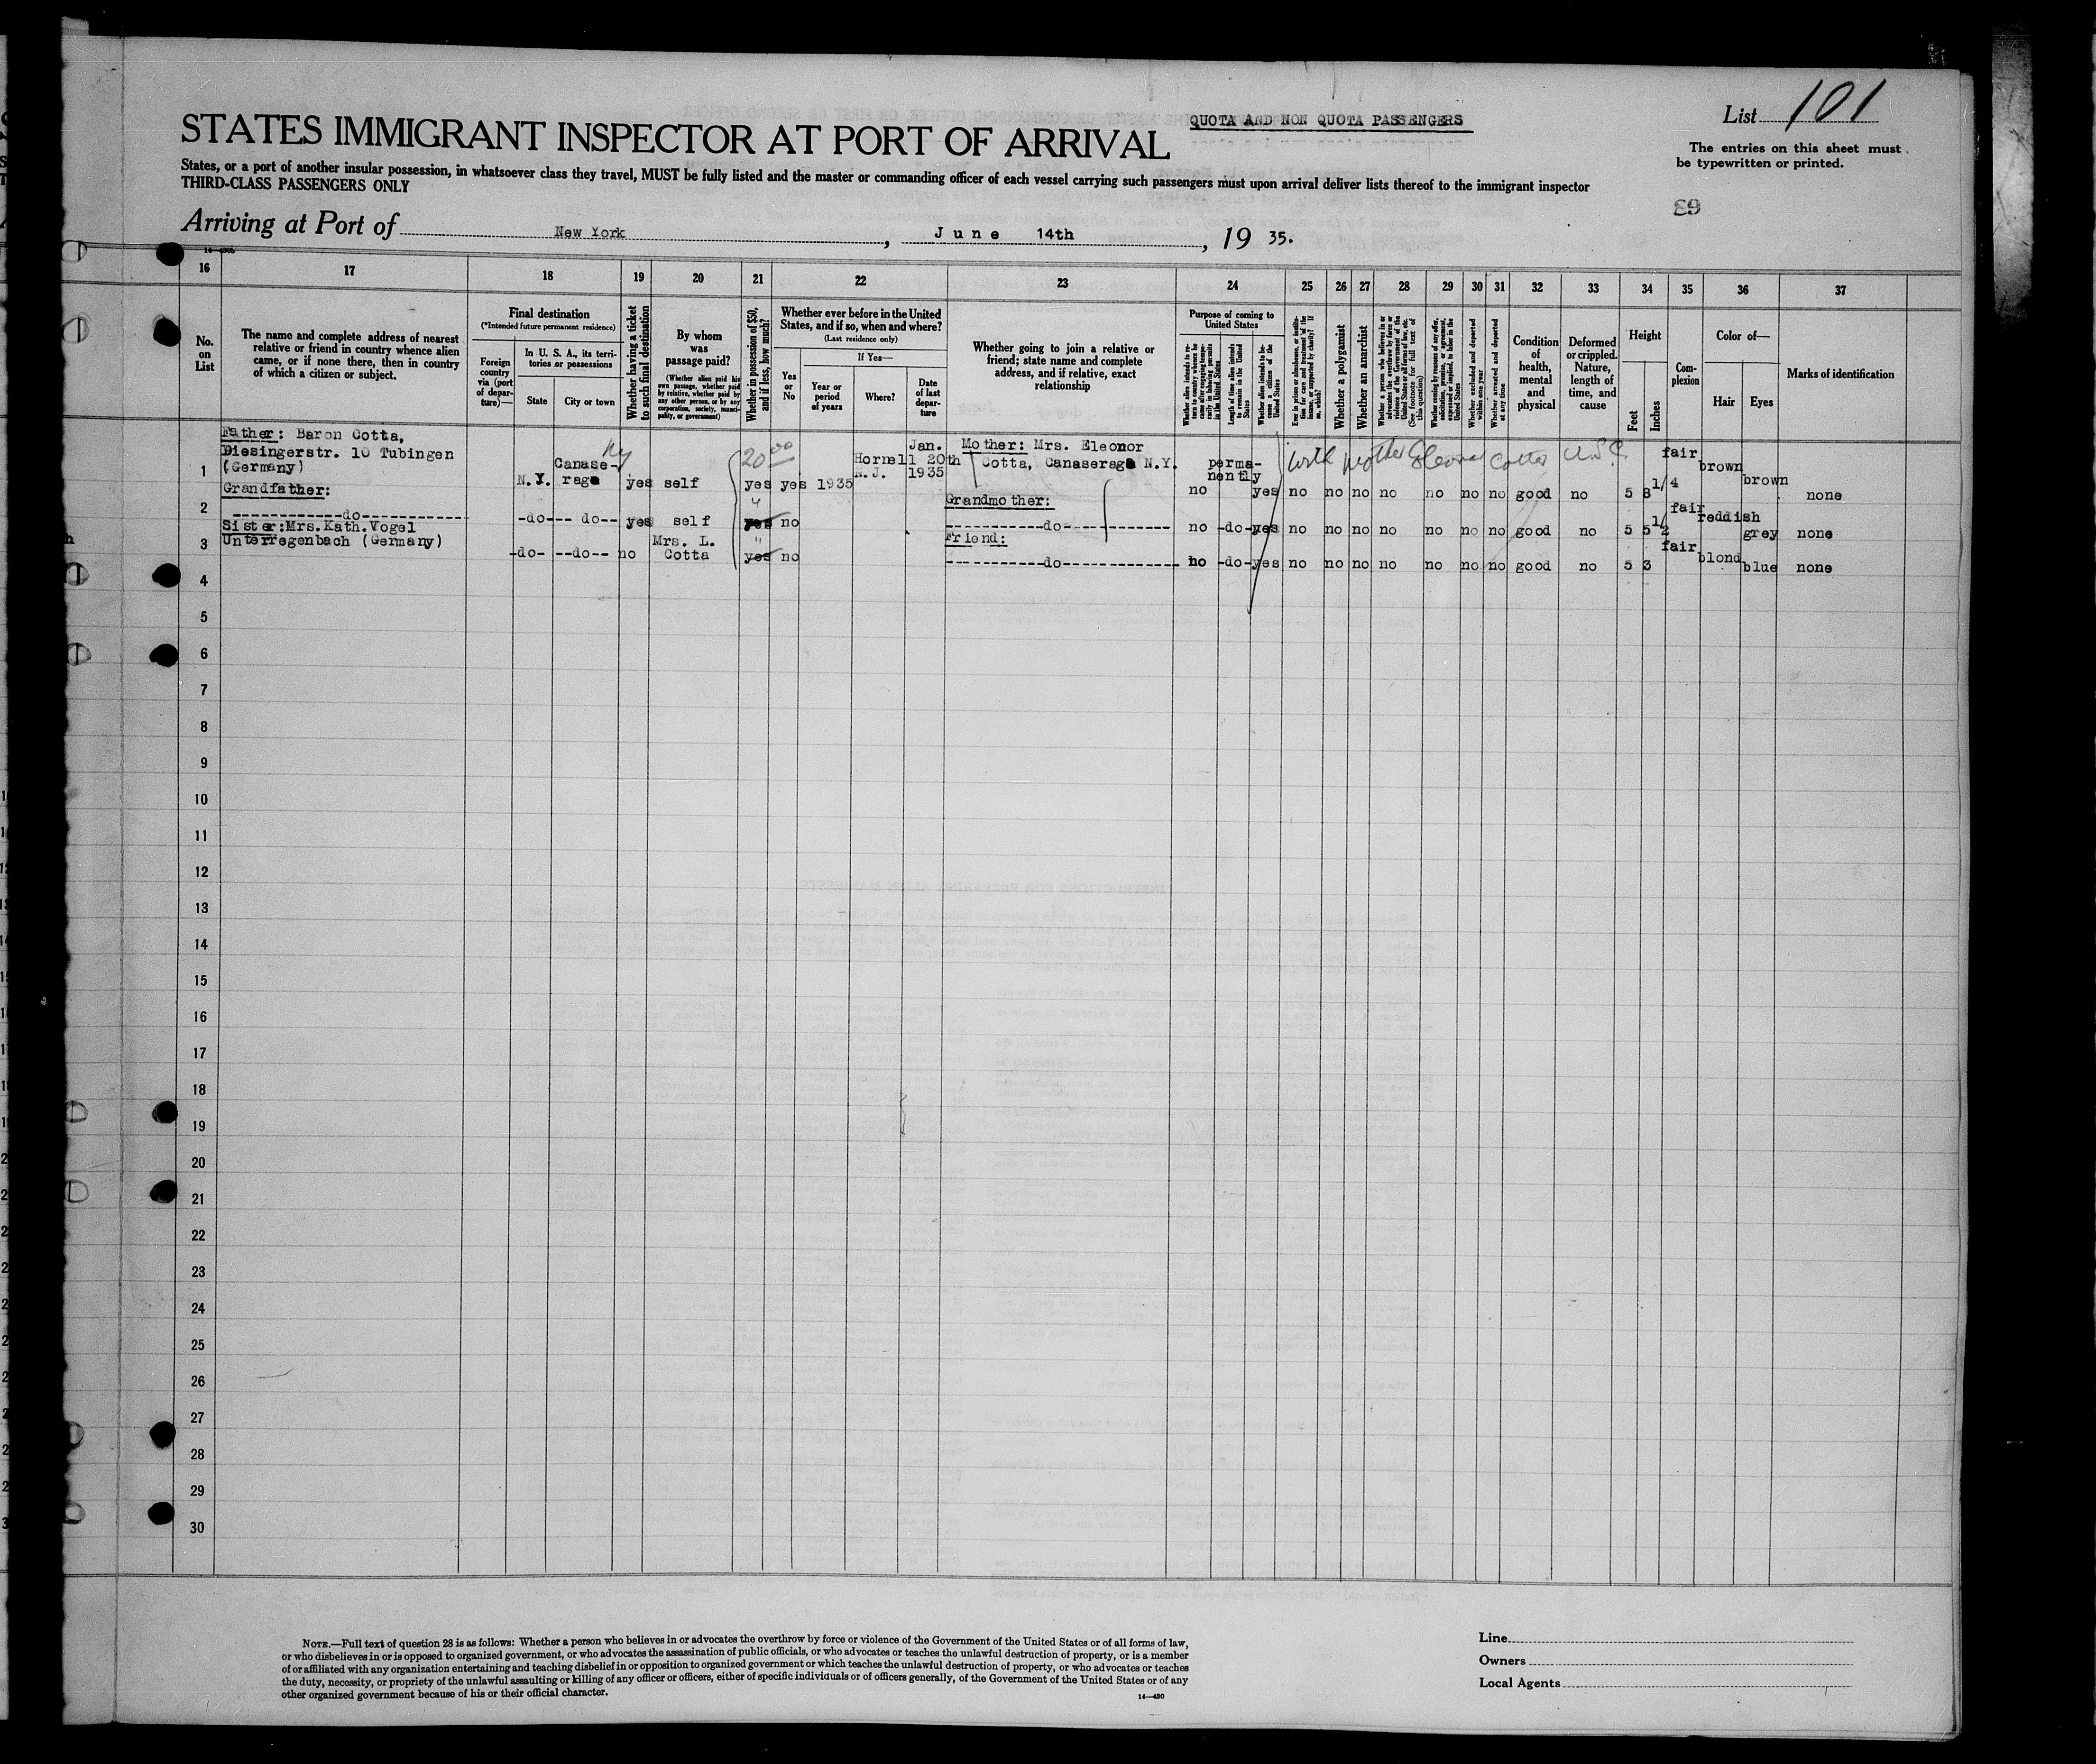 List 101
QUOTA AND NON QUOTA PASSENGERS
STATES IMMIGRANT INSPECTOR AT PORT OF ARRIVAL
The entries on this sheet must
be typewritten or printed.
States, or a port of another insular possession, in whatsoever class they travel, MUST be fully listed and the master or commanding officer of each vessel carrying such passengers must upon arrival deliver lists thereof to the immigrant inspector
THIRD-CLASS PASSENGERS ONLY
63
Arriving at Port of New York, June 14th, 19 35.
16 17 18 19 20 21 22 23 24 25 26 27 28 29 30 31 32 33 34 35 36 37
No. on List
The name and complete address of nearest
relative or friend in country whence alien
came, or if none there, then in country
of which a citizen or subject.
Final destination
(*Intended future permanent residence)
Foreign country via (port of departure)—
In U. S. A., its territories or possessions
State
City or town
Whether having a ticket to such final destination
By whom was passage paid?
(Whether alien paid his own passage, whether paid by relative, whether paid by any other person, or by any corporation, society, municipality, or government)
Whether in possession of $50, and if less, how much?
Whether ever before in the United
States, and if so, when and where?
(Last residence only)
Yes or No
If Yes—
Year or period of years
Where?
Date of last departure
Whether going to join a relative or
friend; state name and complete
address, and if relative, exact
relationship
Purpose of coming to United States
Whether alien intends to return to country whence he came after engaging temporarily in laboring pursuits in the United States
Length of time alien intends to remain in the United States
Whether alien intends to become a citizen of the United States
Ever in prison or almshouse, or institution for care and treatment of the insane, or supported by charity? If so, which?
Whether a polygamist
Whether an anarchist
Whether a person who believes in or advocates the overthrow by force or violence of the Government of the United States or all forms of law, etc. (See footnote for full text of this question)
Whether coming by reason of any offer, solicitation, promise, or agreement, expressed or implied, to labor in the United States
Whether excluded and deported within one year
Whether arrested and deported at any time
Condition of health, mental and physical
Deformed or crippled. Nature, length of time, and cause
Height
Feet
Inches
Complexion
Color of—
Hair
Eyes
Marks of identification
Father: Baron Cotta,
Diesingerstr. 10 Tubingen
(Germany)
1 N.Y. Canaserage Ny yes self 20 00 yes yes 1935 Hornell N.J. Jan. 20th 1935 Mother: Mrs. Eleonor
Cotta, Canaserage N.Y. no permanently yes no no no no no no no good no 5 8 1/4 fair brown brown none
with mother Eleonor Cotta U.S.C.
Grandfather:
2 -do- -do- -do- yes self " yes no Grandmother:
-do- no -do- yes no no no no no no no good no 5 5 1/2 fair reddish grey none
Sister: Mrs. Kath. Vogel
Unterregenbach (Germany)
3 -do- -do- no Mrs. L. Cotta " yes no Friend:
-do- no -do- yes no no no no no no no good no 5 3 fair blond blue none
4
5
6
7
8
9
10
11
12
13
14
15
16
17
18
19
20
21
22
23
24
25
26
27
28
29
30
NOTE.—Full text of question 28 is as follows: Whether a person who believes in or advocates the overthrow by force or violence of the Government of the United States or of all forms of law,
or who disbelieves in or is opposed to organized government, or who advocates the assassination of public officials, or who advocates or teaches the unlawful destruction of property, or is a member
of or affiliated with any organization entertaining and teaching disbelief in or opposition to organized government or which teaches the unlawful destruction of property, or who advocates or teaches
the duty, necessity, or propriety of the unlawful assaulting or killing of any officer or officers, either of specific individuals or of officers generally, of the Government of the United States or of any
other organized government because of his or their official character.
14—430
Line
Owners
Local Agents